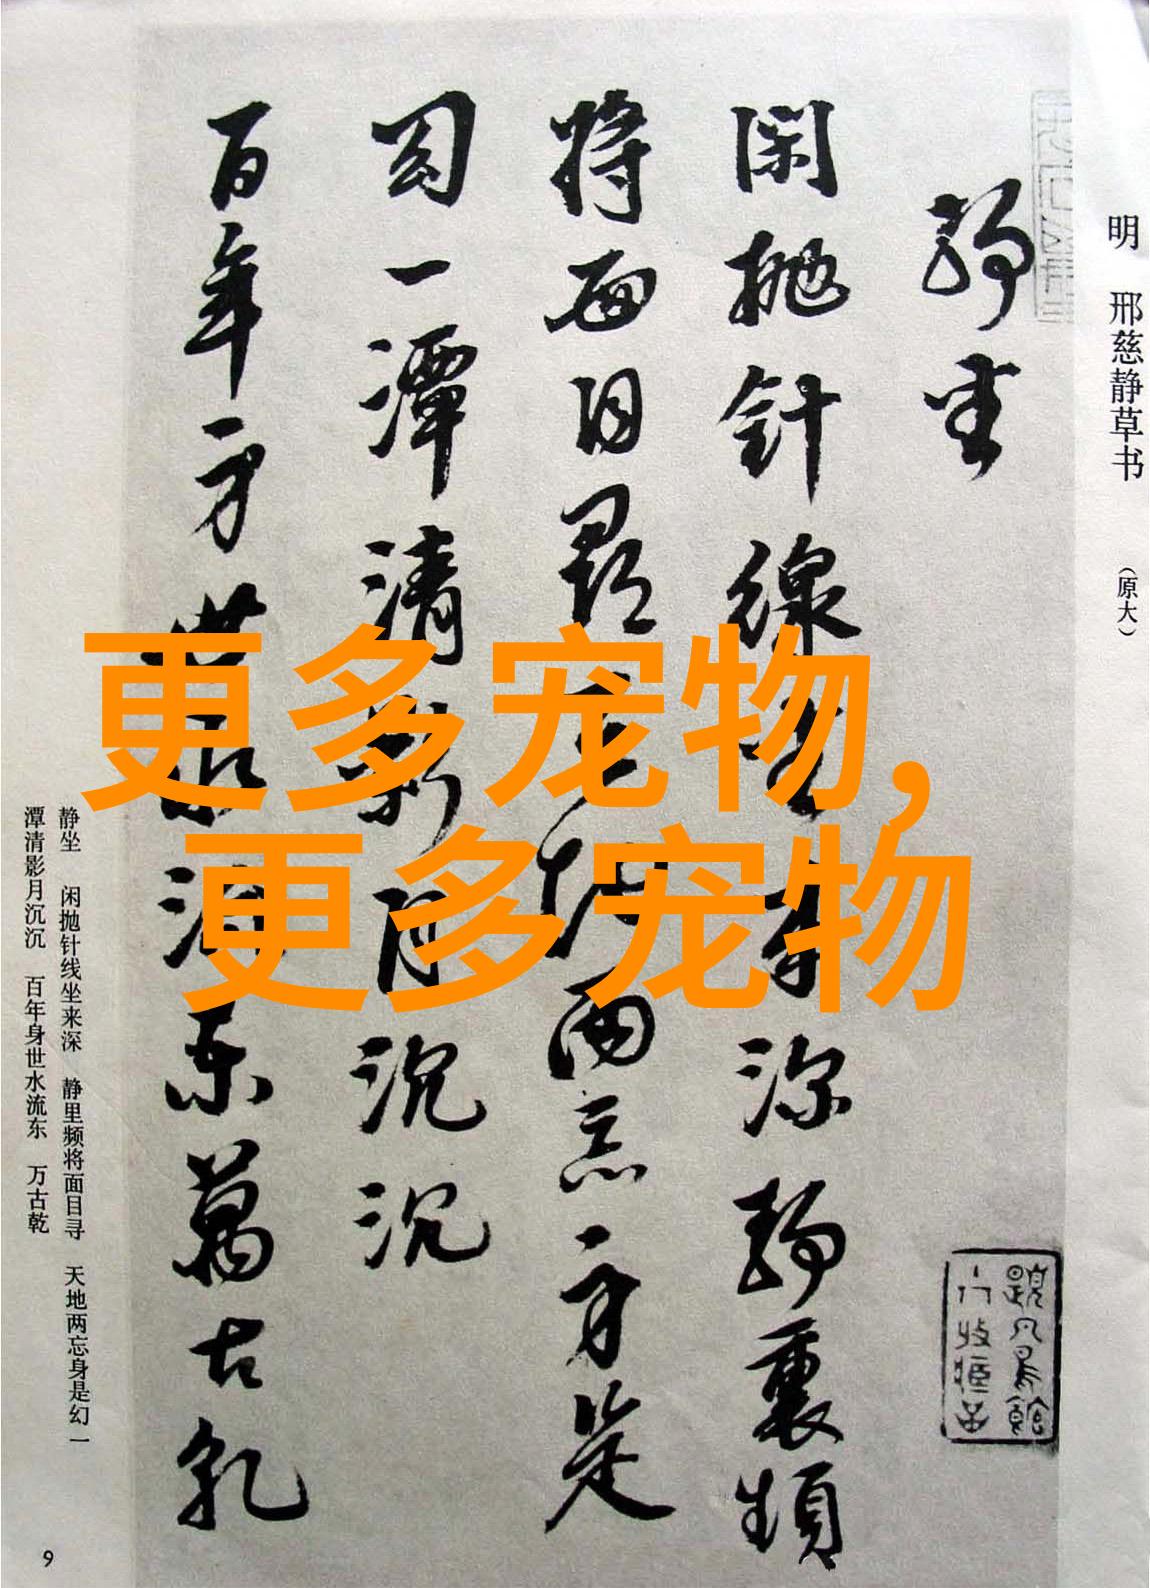 明 邢慈静草书 （原大）
静坐
闲抛针线坐来深静里频
将面目寻天地两忘身是
幻一潭清影月沉沉
百年身世水流东万古乾
更多宠物,
更多宠物
静坐 闲抛针线坐来深 静里频将面目寻 天地两忘身是幻一
潭清影月沉沉 百年身世水流东 万古乾
9